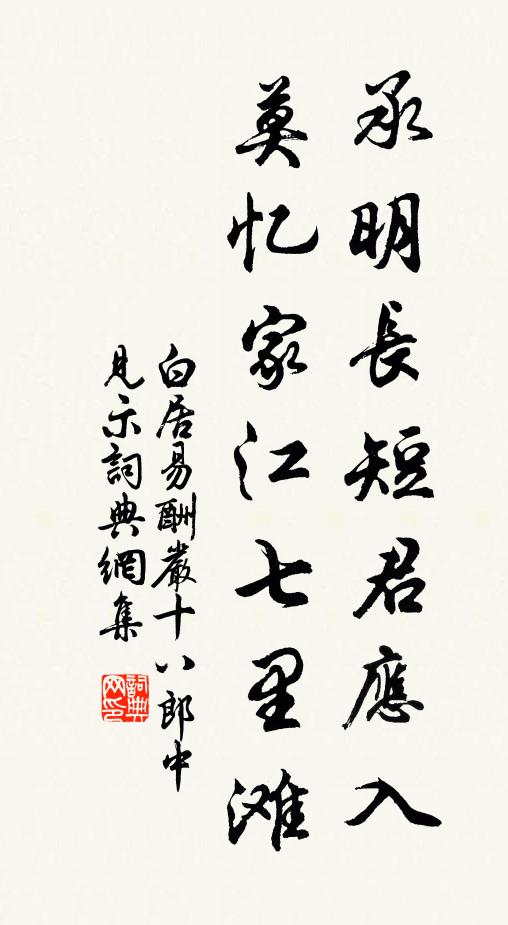 承明長短君應入
莫忆家江七里滩
白居易酬嚴十八郎中
見示詞典網集
詞典
网印